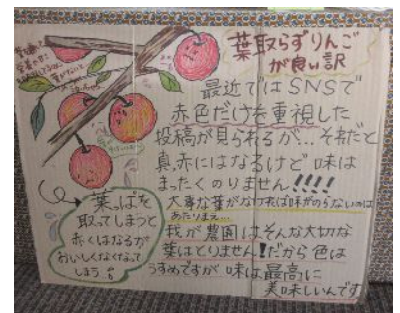 葉取らずりんご
が良い訳
最近ではSNSで
赤色だけを重視した
投稿が見られるが…それだと
真赤にはなるけど味は
まったくのりません!!!!
大事な葉がなければ味がのらないのは
あたりまえ…
我が農園はそんな大切な
葉はとりません!だから色は
うすめですが味は最高に
美味しいんです
葉っぱを
取ってしまうと
赤くはなるが
おいしくなくなって
しまう